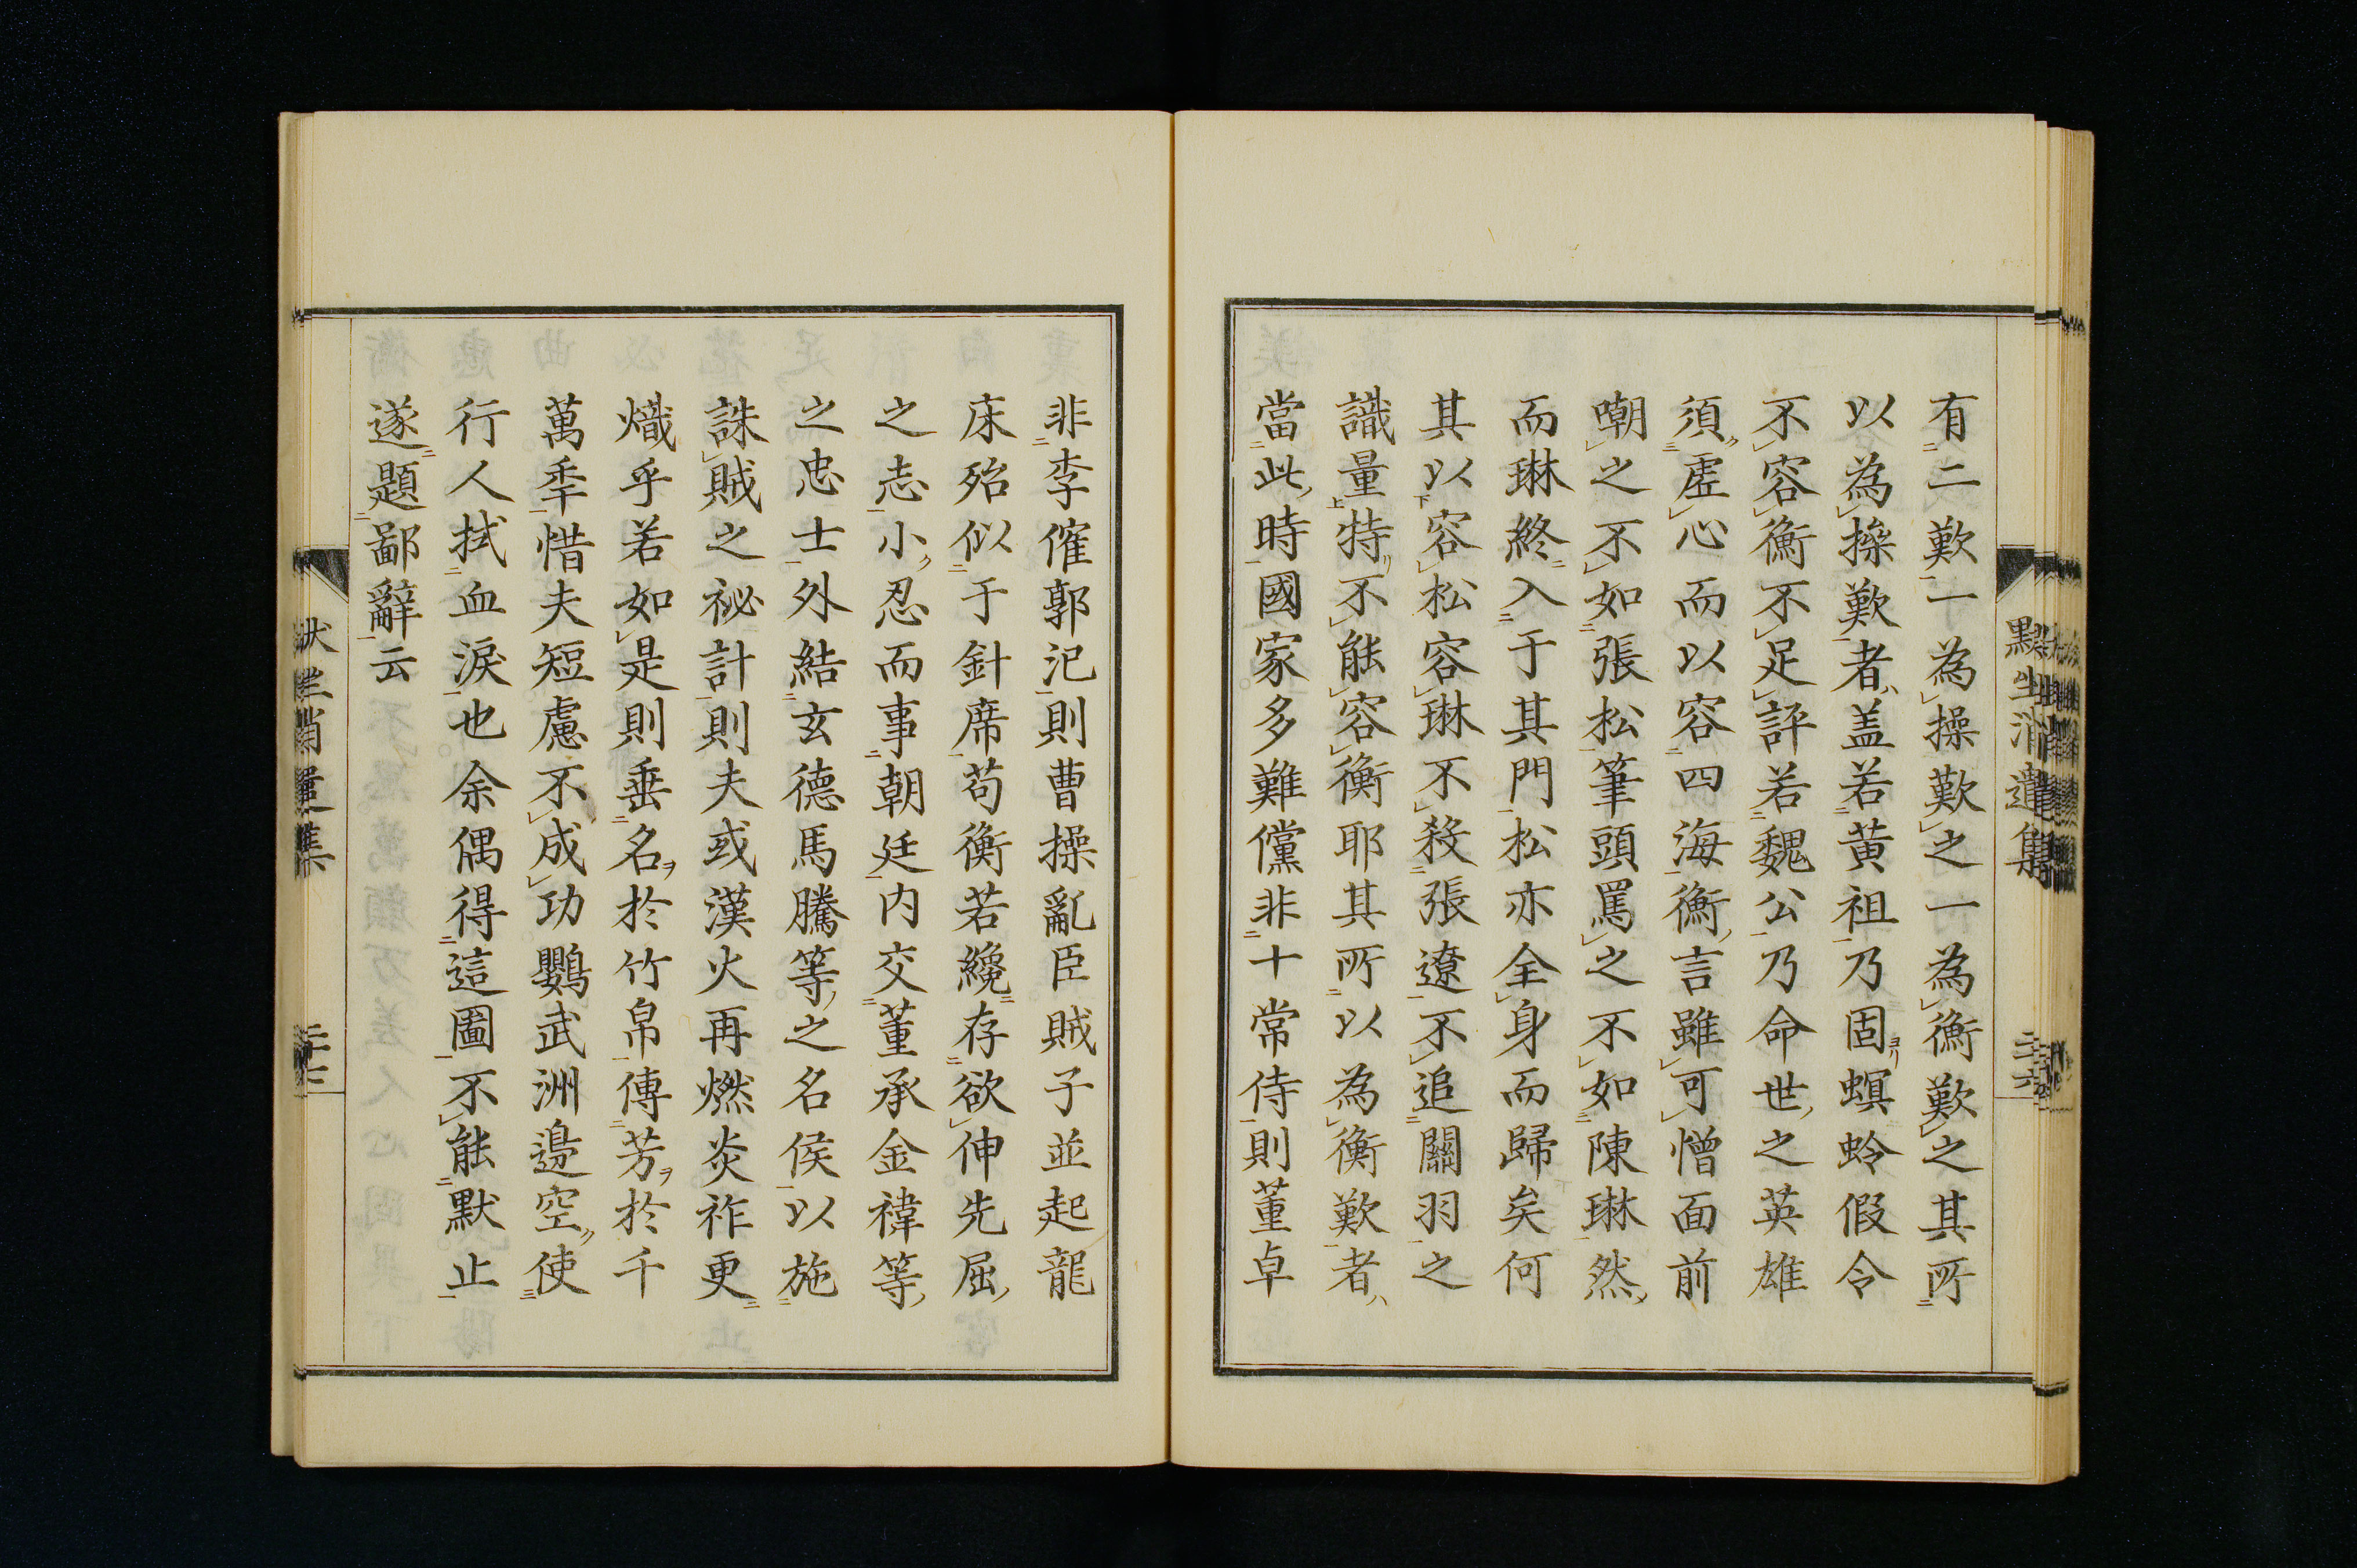 有二歎一為操歎之一為衡歎之其所
以為操歎者盖若黄祖乃固螟蛉假令
不容衡不足評若魏公乃命世之英雄
須虚心而以容四海衡言雖可憎面前
嘲之不如張松筆頭罵之不如陳琳然
而琳終入于其門松亦全身而歸矣何
其以容松容琳不殺張遼不追關羽之
識量特不能容衡耶其所以為衡歎者
當此時國家多難儻非十常侍則董卓
非李傕郭汜則曹操亂臣賊子並起龍
床殆似于針席苟衡若纔存欲伸先屈
之志小忍而事朝廷内交董承金禕等
之忠士外結玄德馬騰等之名侯以施
誅賊之祕計則夫或漢火再燃炎祚更
熾乎若如是則垂名於竹帛傳芳於千
萬秊惜夫短慮不成功鸚武洲邉空使
行人拭血淚也余偶得這圖不能默止
遂題鄙辭云
默生消遣集
二十六
生消遣集
二十七